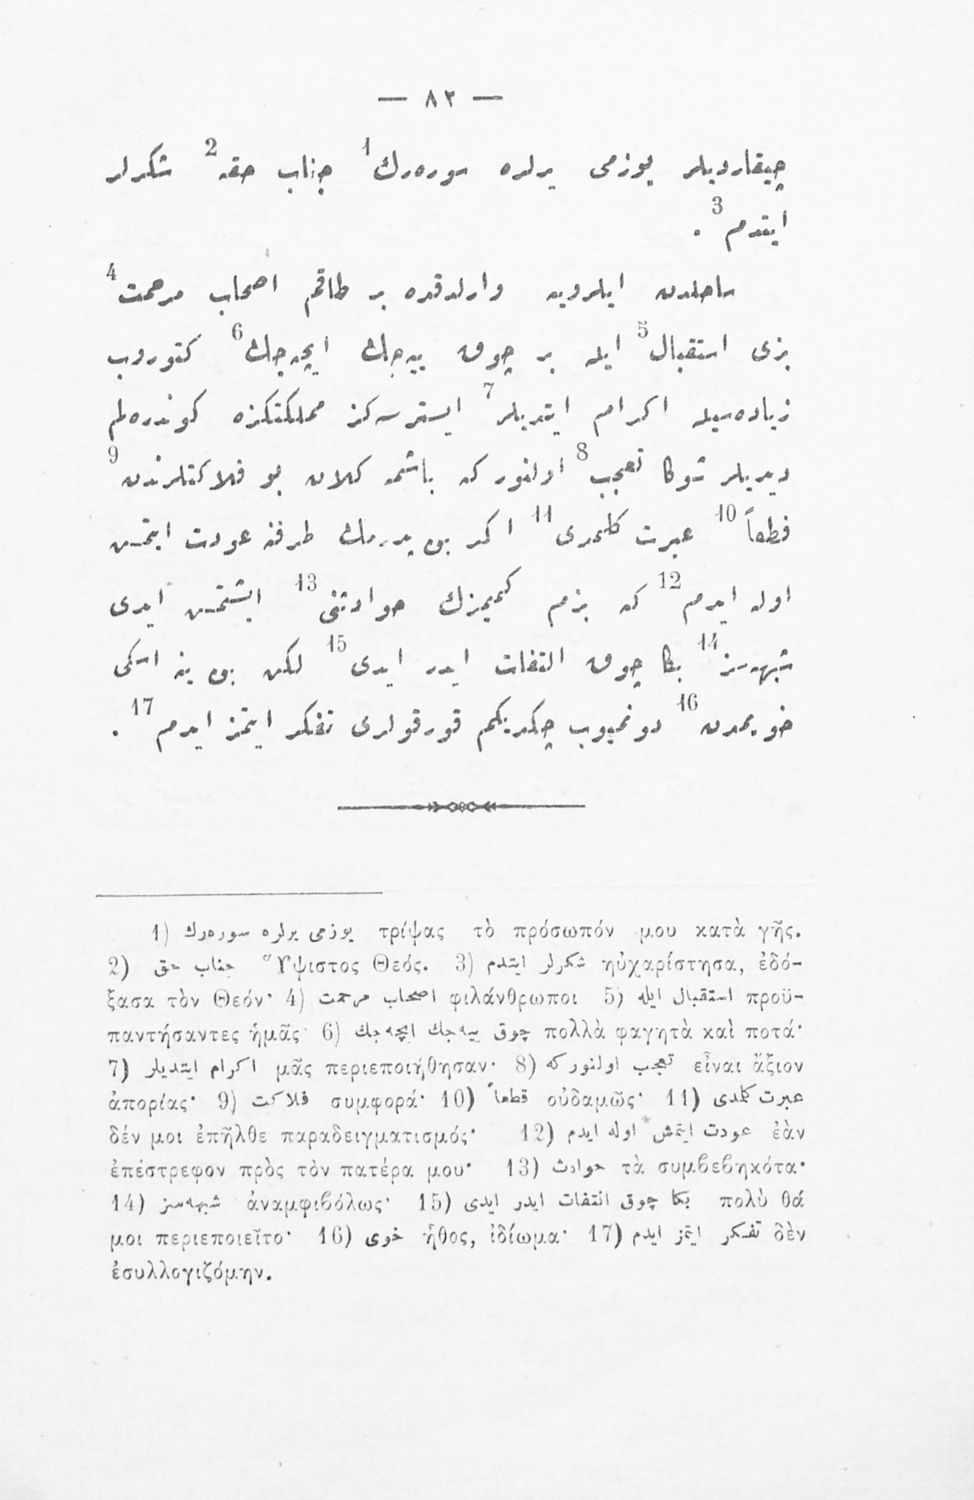 — ٨٢ —
چیقاردیلر یوزمی یرلره سوره‌رك1 جناب حقه2 شكرلر
ایتدم3 .
ساحلدن ایلرویه واردقده بر طاقم اصحاب مرحمت4
بزی استقبال5 ایله بر چوق ییه‌جك ایچه‌جك6 كتوروب
زیاده‌سیله اكرام ایتدیلر7 ایسترسه‌كز مملكتكزه كوندره‌لم
دیدیلر شوكا تعجب8 اولنور كه باشمه كلان بو فلاكتلرندن9
قطعاً10 عبرت كلمدی11 اكر بن پدرمك طرفنه عودت ایتمش
اوله ایدم12 كه بزم كمیمزك حوادثنی13 ایشتمش ایدی
شبهه‌سز14 بكا چوق التفات ایدر ایدی15 لكن بن ینه اسكی
خویمدن16 دونمیوب چكدیكم قورقولری تفكر ایتمز ایدم17 .
1) یوزمی یرلره سوره‌رك τρίψας τὸ πρόσωπόν μου κατὰ γῆς.
2) جناب حق Ὕψιστος Θεός. 3) شكرلر ایتدم ηὐχαρίστησα, ἐδό-
ξασα τὸν Θεόν· 4) اصحاب مرحمت φιλάνθρωποι 5) استقبال ایله προϋ-
παντήσαντες ἡμᾶς· 6) چوق ییه‌جك ایچه‌جك πολλὰ φαγητὰ καὶ ποτά·
7) اكرام ایتدیلر μᾶς περιεποιήθησαν· 8) تعجب اولنور كه εἶναι ἄξιον
ἀπορίας· 9) فلاكت συμφορά· 10) قطعاً οὐδαμῶς· 11) عبرت كلمدی
δέν μοι ἐπῆλθε παραδειγματισμός· 12) عودت ایتمش اوله ایدم ἐὰν
ἐπέστρεφον πρὸς τὸν πατέρα μου· 13) حوادث τὰ συμβεβηκότα·
14) شبهه‌سز ἀναμφιβόλως· 15) بكا چوق التفات ایدر ایدی πολὺ θά
μοι περιεποιεῖτο· 16) خوی ἦθος, ἰδίωμα· 17) تفكر ایتمز ایدم δὲν
ἐσυλλογιζόμην.